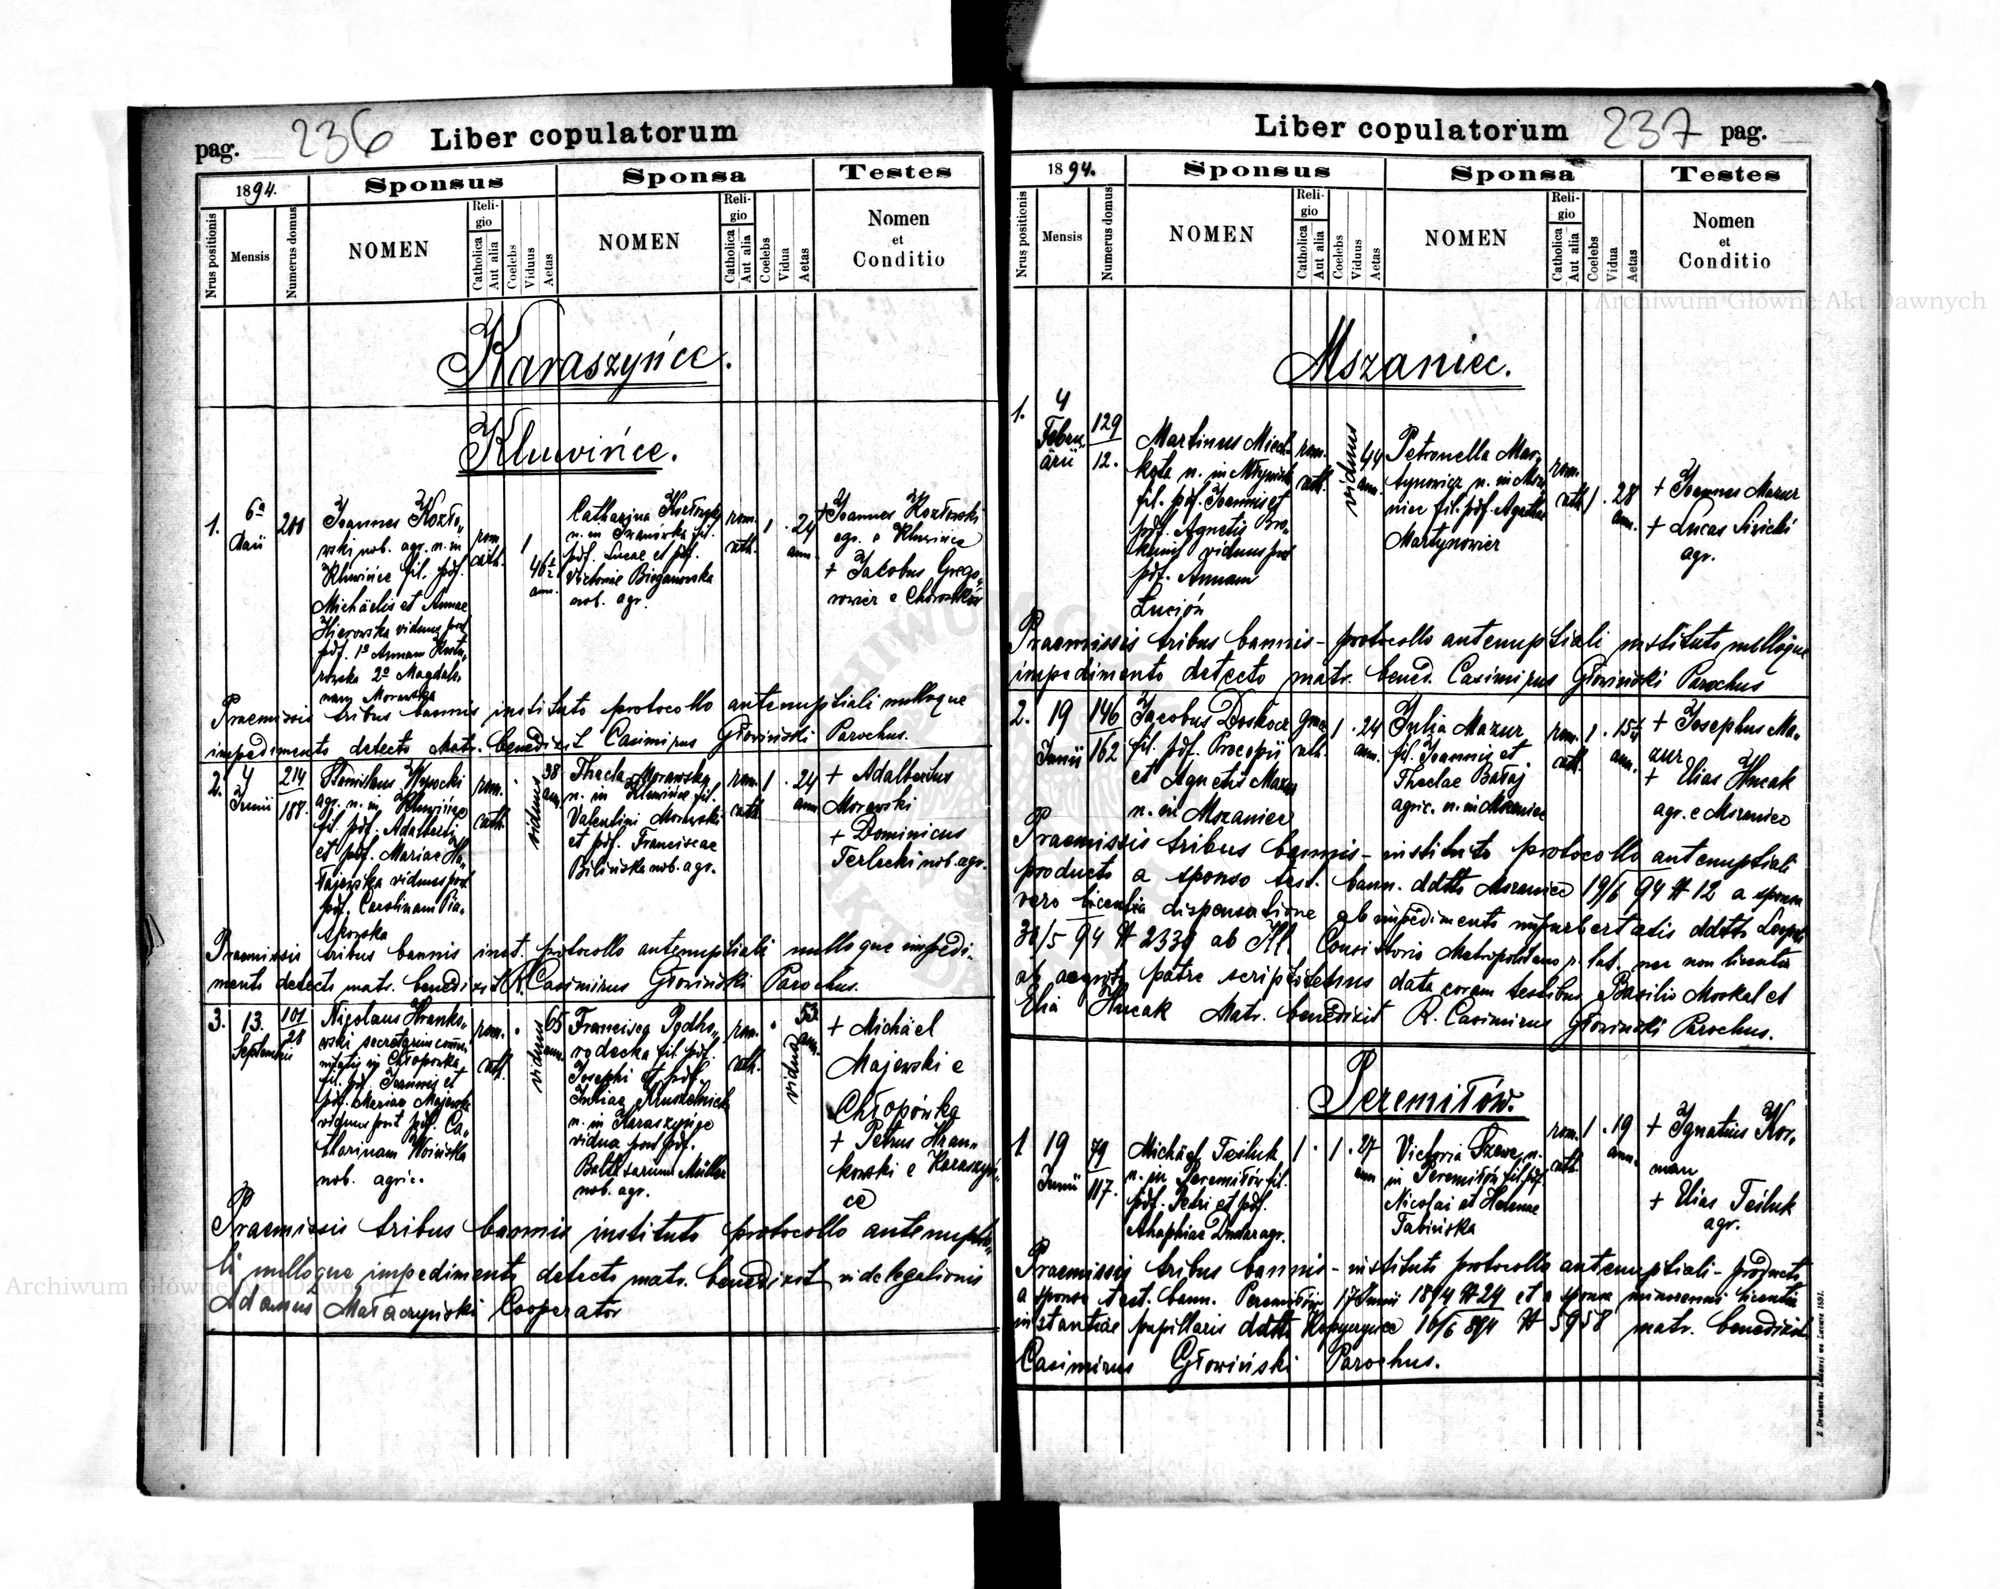 pag. 236 Liber copulatorum
1894. Sponsus Sponsa Testes
Nrus positionis Mensis Numerus domus NOMEN Religio Catholica Aut alia Coelebs Viduus Aetas NOMEN Religio Catholica Aut alia Coelebs Vidua Aetas Nomen et Conditio
Karaszyńce.
Kluwińce.
1.
6a
Maii
200
Joannes Kozło-
wski nob. agr. n. in
Kluwińce fil. pdf.
Michäelis et Annae
viduus post
pdf. 1º Annam
2º Magdale-
nam Morawska
rom.
cath.
1
46 1/2
ann.
Catharina
n. in Iwanówka fil.
pdf. Lucae et pdf.
Victoriae Bieganowska
nob. agr.
rom.
cath.
1 . 24
ann.
+ Joannes Kozłowski
agr. e Kluwińce
+ Jacobus Grego-
rowicz e Chorostków
Praemissis tribus bannis instituto protocollo antenuptiali nulloque
impedimento detecto Matr. benedixit Casimirus Głowiński Parochus.
2.
4
Junii
214
188.
Stanislaus Wysocki
agr. n. in Kluwińce
fil. pdf. Adalberti
et pdf. Mariae Ha-
viduus post
pdf. Carolinam Pia-
rom.
cath.
viduus
38
ann.
Thecla Morawska
n. in Kluwińce fil.
Valentini Morawski
et pdf. Franciscae
Bilińska nob. agr.
rom.
cath.
1 . 24
ann.
+ Adalbertus
Morawski
+ Dominicus
Terlecki nob. agr.
Praemissis tribus bannis inst. protocollo antenuptiali nulloque impedi-
mento detecto matr. benedixit R. Casimirus Głowiński Parochus.
3.
13.
Septembris
101
28
Nicolaus Hranko-
wski secretarius commu-
nitatis in Chłopówka
fil. pdf. Joannis et
pdf. Mariae Majewska
viduus post pdf. Ca-
tharinam Woińska
nob. agric.
rom.
cath.
viduus
65
ann.
Francisca Podho-
rodecka fil. pdf.
Josephi et pdf.
Juliae Kruszelnicka
n. in Karaszyńce
vidua post pdf.
Balthasarum Müller
nob. agr.
rom.
cath.
vidua
53
ann.
+ Michäel
Majewski e
Chłopówka
+ Petrus Hran-
kowski e Karaszyń-
ce
Praemissis tribus bannis instituto protocollo antenuptia-
li nulloque impedimento detecto matr. benedixit vi delegationis
Adamus Małaczyński Cooperator
Liber copulatorum 237 pag.
1894. Sponsus Sponsa Testes
Nrus positionis Mensis Numerus domus NOMEN Religio Catholica Aut alia Coelebs Viduus Aetas NOMEN Religio Catholica Aut alia Coelebs Vidua Aetas Nomen et Conditio
Mszaniec.
1.
4
Febru-
arii
129
12.
Martinus Miech-
kota n. in
fil. pdf. Joannis et
pdf. Agnetis
viduus post
pdf. Annam
Lucjón
rom.
cath.
viduus
44
ann.
Petronella Mar-
tynowicz n. in Msza-
niec fil. pdf. Agathae
Martynowicz
rom.
cath.
1 . 28
ann.
+ Joannes Mazur
+ Lucas Siwicki
agr.
Praemissis tribus bannis - protocollo antenuptiali instituto nulloque
impedimento detecto matr. bened. Casimirus Głowiński Parochus
2.
19
Junii
146
162
Jacobus Doskocz
fil. pdf. Procopii
et Agnetis Mazur
n. in Mszaniec
cath.
1 . 24
ann.
Julia Mazur
fil. Joannis et
Theclae Bałaj
agric. n. in Mszaniec
rom.
cath.
1 . 15 1/4
ann.
+ Josephus Ma-
zur
+ Elias Hucak
agr. e Mszaniec
Praemissis tribus bannis - instituto protocollo antenuptiali
producto a sponso test. bann. ddtto Mszaniec 19/6 94 # 12 a sponsa
vero licentia dispensatione ab impedimento ddtto Leopoli
30/5 94 # 2339 ab Consistorio Metropolitano r. lat. nec non licentia
ab aegroto patre scriptotenus data coram testibus Basilio Moskal et
Elia Hucak Matr. benedixit R. Casimirus Głowiński Parochus.
Peremiłów.
1
19
Junii
79
117.
Michäel Tesluk
n. in Peremiłów fil.
pdf. Petri et pdf.
Ahaphiae Dudar agr.
1 . 1 . 27
ann
Victoria Szewc n.
in Peremiłów fil. pdf.
Nicolai et Helenae
Tabińska
rom.
cath.
1 . 19
ann.
+ Ignatius Kor-
man
+ Elias Tesluk
agr.
Praemissis tribus bannis - instituto protocollo antenuptiali - producto
a sponso test. bann. Peremiłów 17 Junii 1894 # 24 et a sponsa minorenni licentia
instantiae pupillaris ddtto Kopyczyńce 16/6 894 # 5958 matr. benedixit
Casimirus Głowiński Parochus.
Z Drukarni Ludowej we Lwowie 1891.
Archiwum Główne Akt Dawnych
Archiwum Główne Akt Dawnych